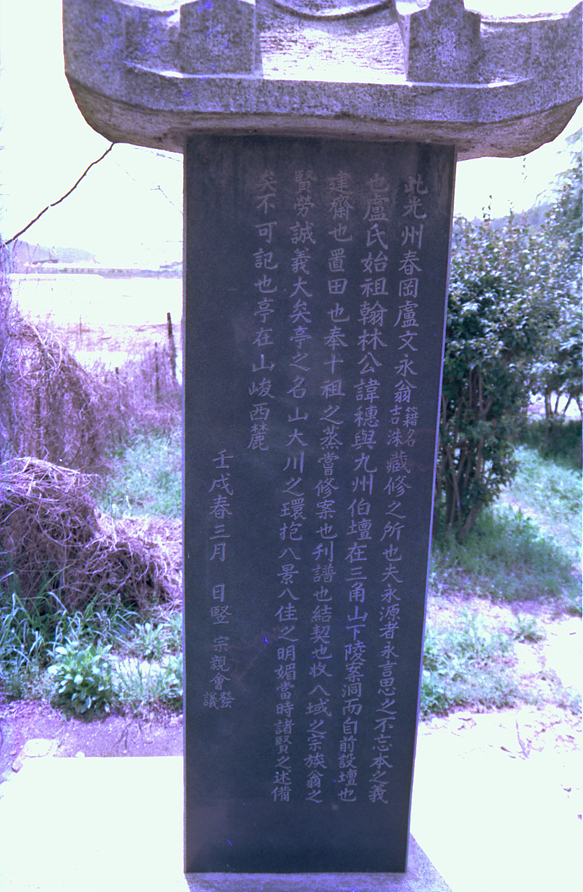 此光州春岡盧文永翁籍名吉洙藏修之所也夫永源者永言思之不忘本之義
也盧氏始祖翰林公諱穗與九州伯壇在三角山下陵案洞而自前設壇也
建齋也置田也奉十祖之蒸嘗修案也刊譜也結契也收八域之宗族翁之
賢勞誠義大矣亭之名山大川之環抱八景八佳之明媚當時諸賢之述備
矣不可記也亭在山峻西麓
壬戌春三月 日竪 宗親會發議